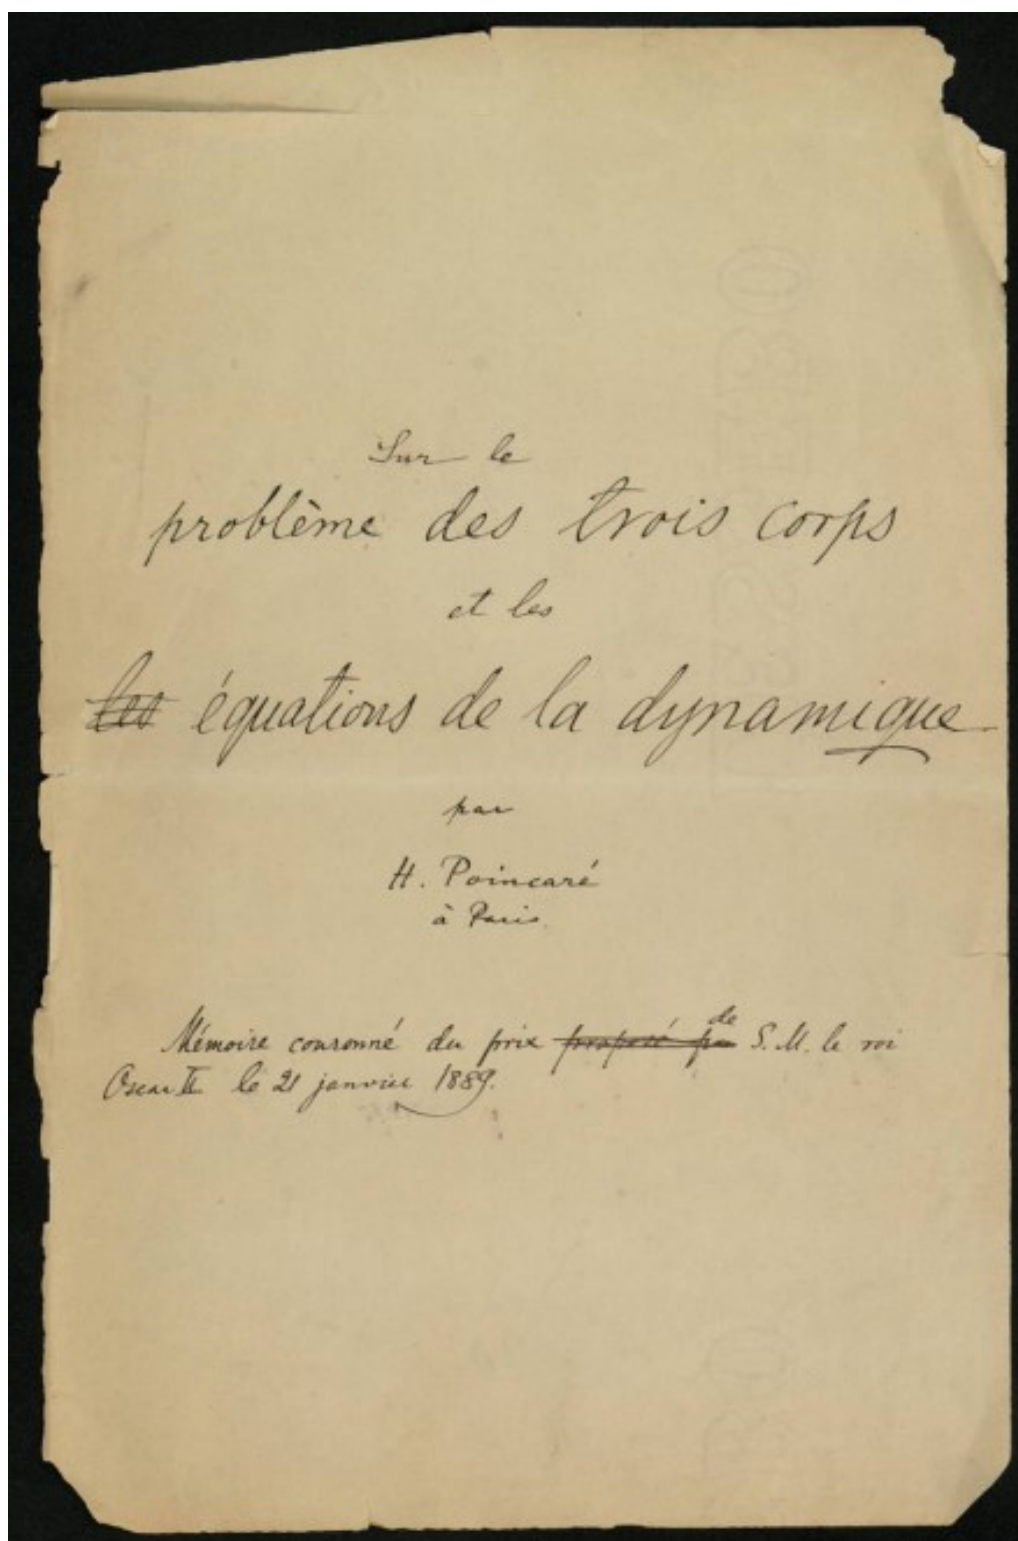 Sur le
problème des trois corps
et les
les équations de la dynamique
par
H. Poincaré
à Paris.
Mémoire couronné du prix proposé par de S. M. le roi
Oscar II le 21 janvier 1889.